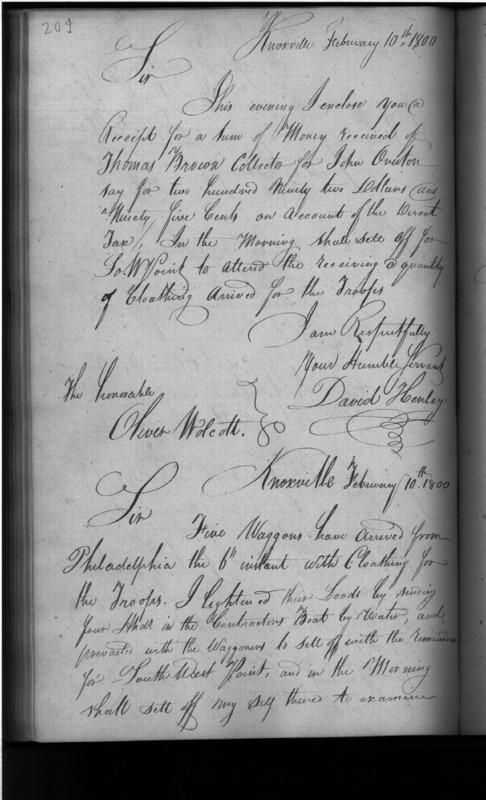 209
Knoxville February 10th. 1800
Sir
This evening I enclose you a
Receipt for a Sum of Money received of
Thomas Brown Collector for John Overton
say for two hundred Ninety two Dollars and
Ninety five Cents on Account of the Direct
Tax, In the Morning shall sett off for
So. W Point to attend the receiving a quantity
of Cloathing Arrived for the Troops
I am Respectfully
Your Humble Servant
David Henley
The Honorable
Oliver Wolcott.
Knoxville February 10th 1800
Sir
Five Waggons have Arrived from
Philadelphia the 6th instant with Cloathing for
the Troops. I lightened their Loads by sending
four Hhds in the Contractors Boat by Water, and
prevailed with the Waggoners to sett off with the remainder
for South West Point, and in the Morning
shall sett off my self there to examine